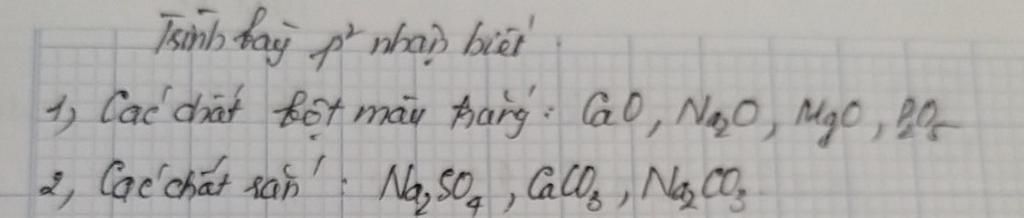 Trình bày p² nhận biết.
1, Các chất bột màu trắng: CaO, Na₂O, MgO, P₂O₅
2, Các chất rắn: Na₂SO₄, CaCO₃, Na₂CO₃